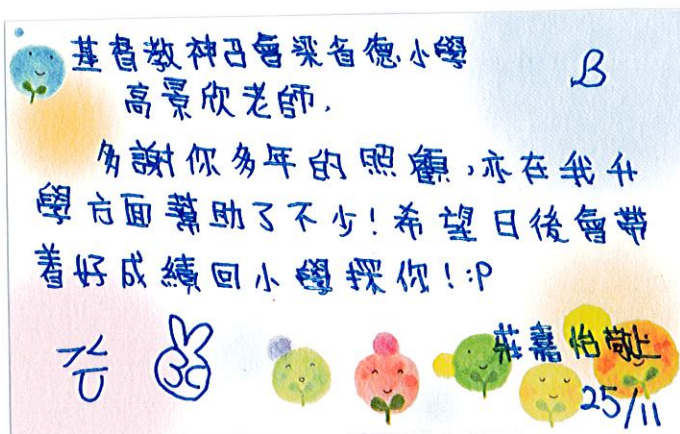 基督教神召會梁省德小學
B
高景欣老師,
多謝你多年的照顧,亦在我升
學方面幫助了不少!希望日後會帶
着好成績回小學探你!:P
莊嘉怡敬上
25/11